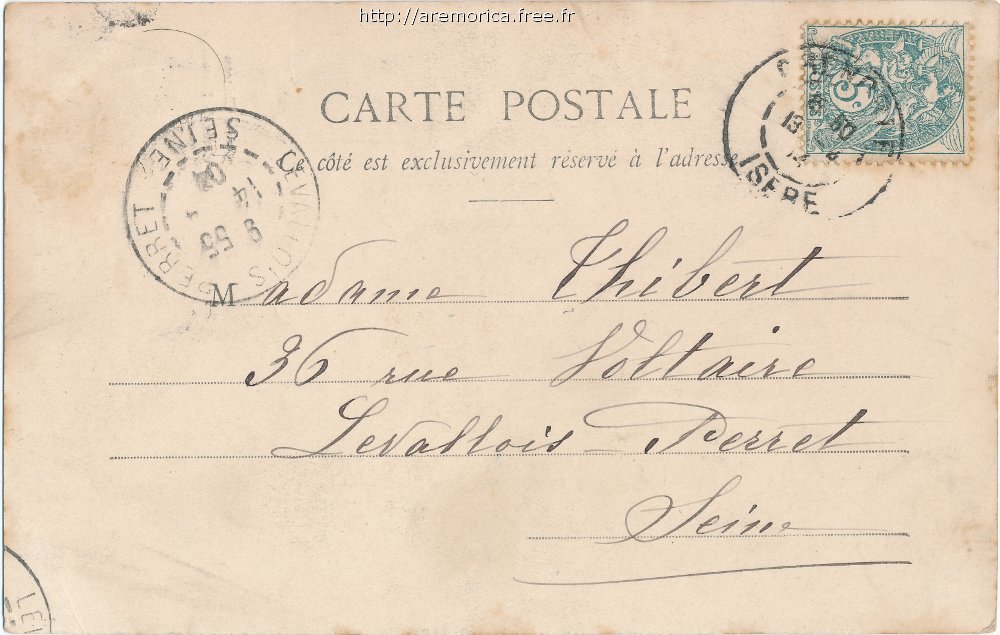 http://aremorica.free.fr
CARTE POSTALE
Ce côté est exclusivement réservé à l'adresse
Madame Thibert
36 rue Voltaire
Levallois-Perret
Seine
5c
ISERE
LEVALLOIS PERRET SEINE
9 55
14
04
13
LE